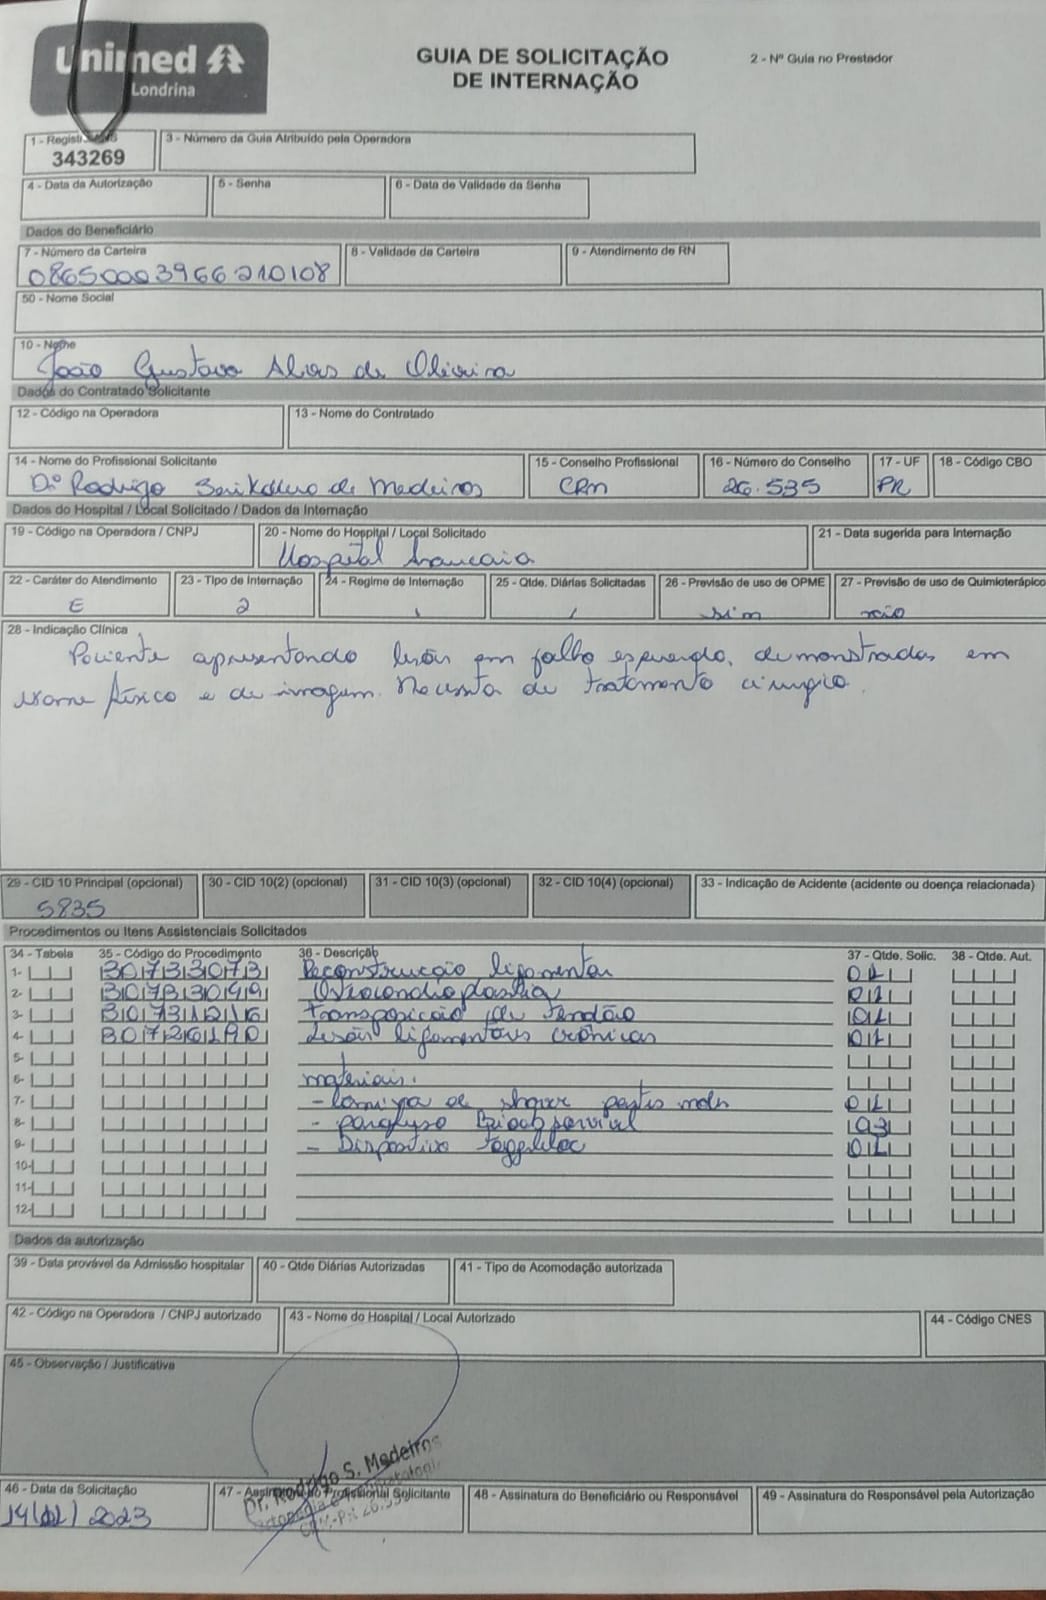 Unimed
Londrina
GUIA DE SOLICITAÇÃO
DE INTERNAÇÃO
2 - Nº Guia no Prestador
1 - Registro ANS
343269
3 - Número da Guia Atribuído pela Operadora
4 - Data da Autorização
5 - Senha
6 - Data de Validade da Senha
Dados do Beneficiário
7 - Número da Carteira
08650003966210108
8 - Validade da Carteira
9 - Atendimento de RN
50 - Nome Social
10 - Nome
João Gustavo Alves de Oliveira
Dados do Contratado Solicitante
12 - Código na Operadora
13 - Nome do Contratado
14 - Nome do Profissional Solicitante
Drº Rodrigo de Medeiros
15 - Conselho Profissional
CRM
16 - Número do Conselho
26.535
17 - UF
PR
18 - Código CBO
Dados do Hospital / Local Solicitado / Dados da Internação
19 - Código na Operadora / CNPJ
20 - Nome do Hospital / Local Solicitado
Hospital Araucaia
21 - Data sugerida para Internação
22 - Caráter do Atendimento
E
23 - Tipo de Internação
2
24 - Regime de Internação
25 - Qtde. Diárias Solicitadas
26 - Previsão de uso de OPME
sim
27 - Previsão de uso de Quimioterápico
não
28 - Indicação Clínica
Paciente apresentando lesões em joelho esquerdo, demonstradas em
exame físico e de imagem. Necessita de tratamento cirurgico.
29 - CID 10 Principal (opcional)
S835
30 - CID 10(2) (opcional)
31 - CID 10(3) (opcional)
32 - CID 10(4) (opcional)
33 - Indicação de Acidente (acidente ou doença relacionada)
Procedimentos ou Itens Assistenciais Solicitados
34 - Tabela
35 - Código do Procedimento
36 - Descrição
37 - Qtde. Solic.
38 - Qtde. Aut.
1- 30733073 Reconstrução ligamentar 01
2- Osteocondroplastia 01
3- transposição de tendão 01
4- Lesões ligamentares crônicas 01
5-
6- materiais:
7- - lamina de shaver 01
8- 03
9- - Dispositivo 01
10-
11-
12-
Dados da autorização
39 - Data provável da Admissão hospitalar
40 - Qtde Diárias Autorizadas
41 - Tipo de Acomodação autorizada
42 - Código na Operadora / CNPJ autorizado
43 - Nome do Hospital / Local Autorizado
44 - Código CNES
45 - Observação / Justificativa
46 - Data da Solicitação
2023
47 - Assinatura do Profissional Solicitante
Dr. Rodrigo S. Medeiros
48 - Assinatura do Beneficiário ou Responsável
49 - Assinatura do Responsável pela Autorização